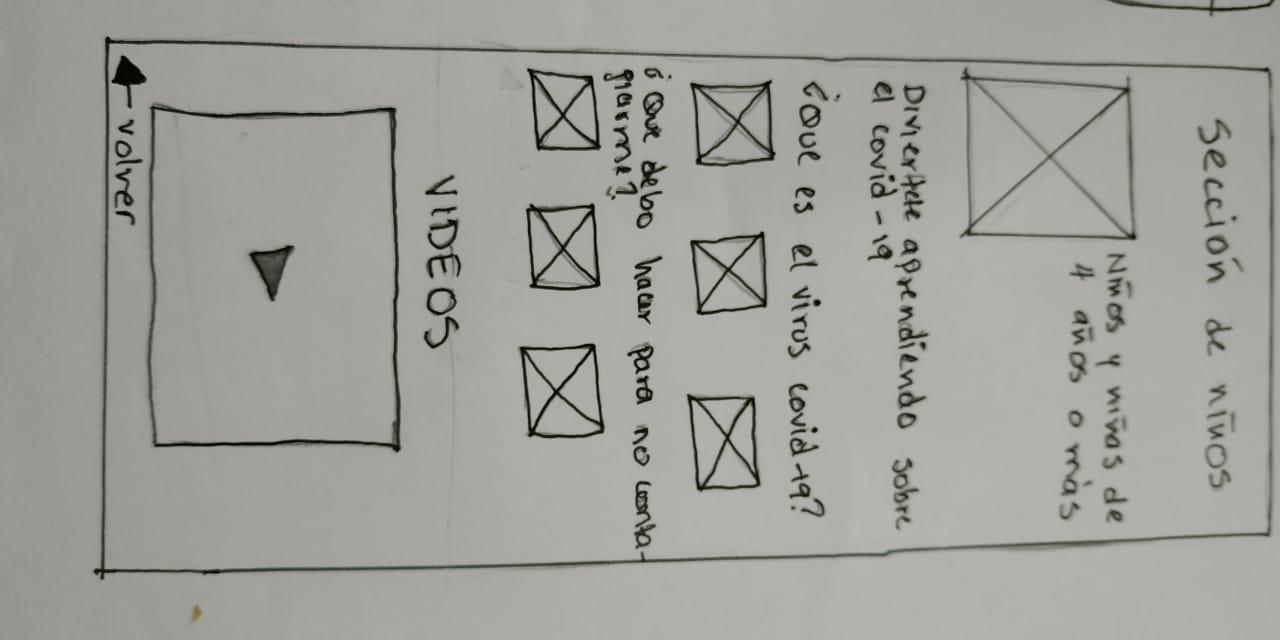 Sección de niños
Niños y niñas de
4 años o más
Diviertete aprendiendo sobre
el covid-19
¿Que es el virus covid-19?
¿Que debo hacer para no conta-
giarme?
VIDEOS
volver